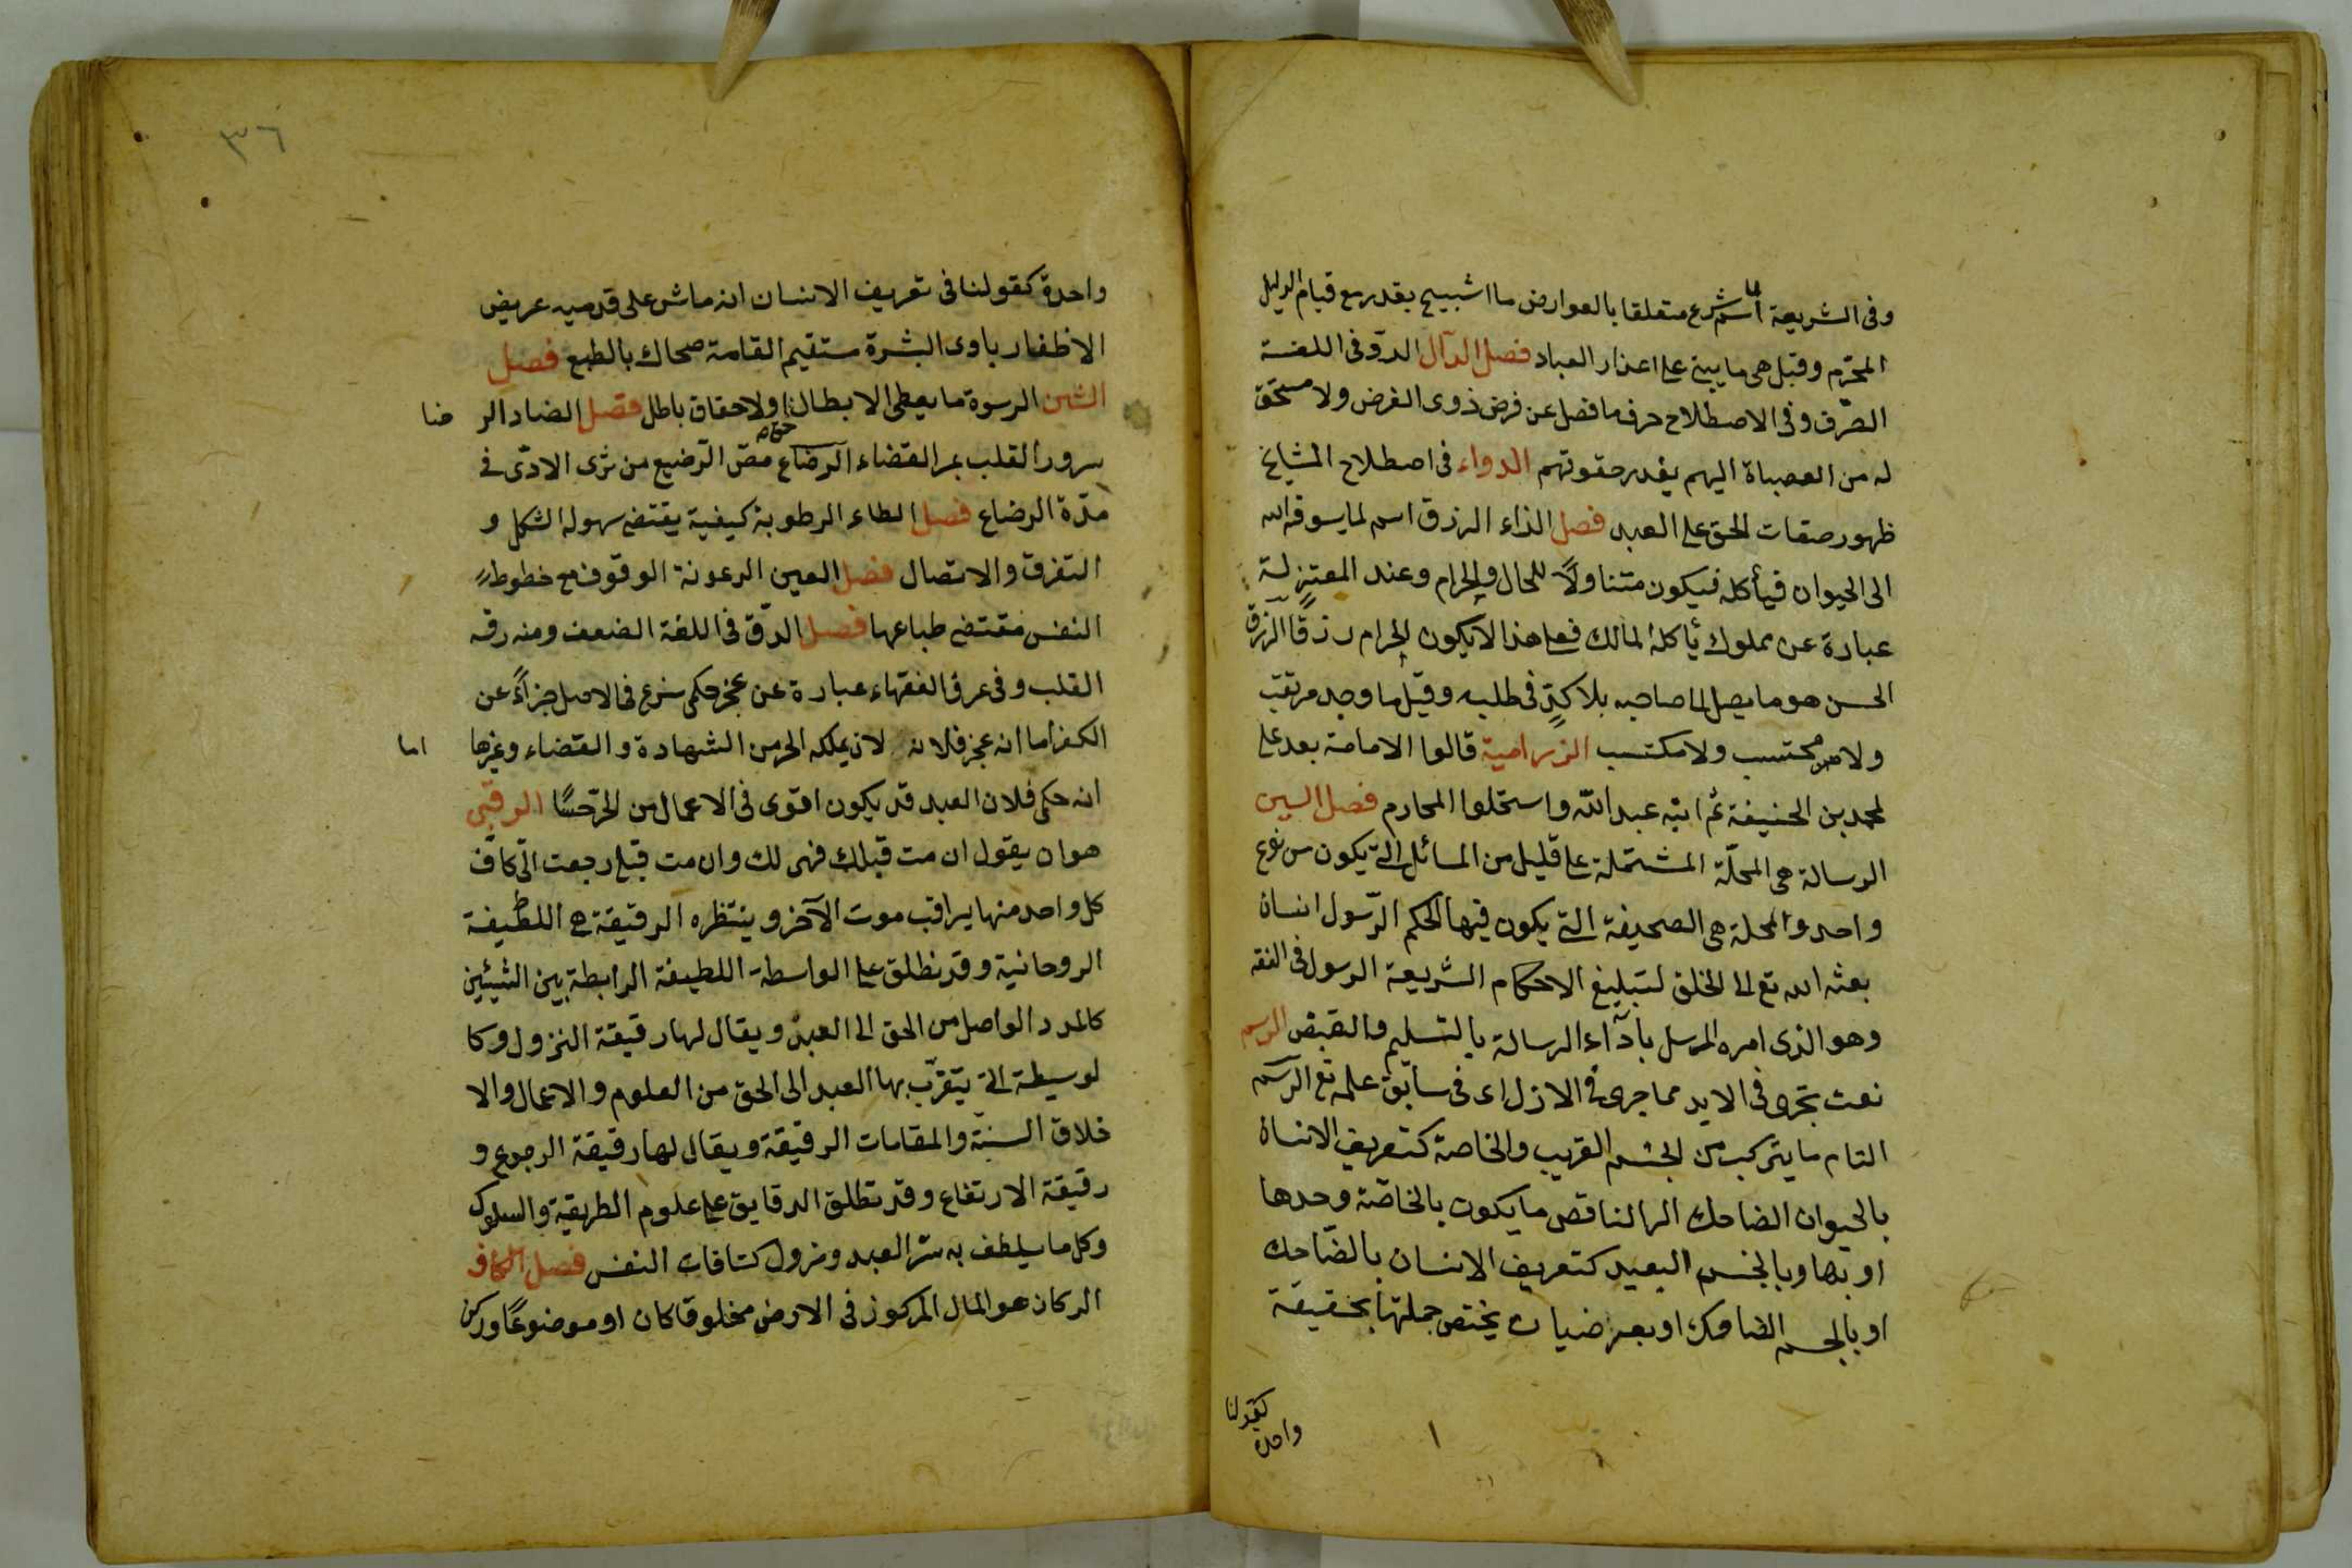 وفى الشريعة اسم لما شرع متعلقا بالعوارض ما اشبيح بقدر مع قيام الدليل
المحرّم وقيل هى ما يبنى على اعذار العباد فصل الدآل الردّ فى اللغة
الصّرف وفى الاصطلاح حرف ما فضل عن فرض ذوى الفرض ولا مستحق
له من العصباة اليهم بقدر حقوقهم الدواء فى اصطلاح المشايخ
ظهور صفات الحق على العبد فصل الذاء الرزق اسم لما يسوقه الله
الى الحيوان فيأكله فيكون متناولًا للحال والحرام وعند المعتزلة
عبارة عن مملوك يأكله المالك فعلى هذا لا يكون الحرام رزقًا الرزق
الحسن هو ما يصل الى صاحبه بلا كدٍّ فى طلبه وقيل ما وجد مرتقب
ولا محتسب ولا مكتسب الزرامية قالوا الامامة بعد على
لمحمد بن الحنيفة ثم ابنه عبد الله واستحلوا المحارم فصل السين
الرسالة هى المجلّة المشتملة على قليل من المسائل التى يكون من نوع
واحد والمجلة هى الصحيفة التى يكون فيها الحكم الرّسول انسان
بعثه الله تع الى الخلق لتبليغ الاحكام الشريعة الرسول فى الفقه
وهو الذى امره المرسل بأدآء الرسالة بالتسليم والقبض الرسم
نعت تجرى فى الابد مما جرى فى الازل اى فى سابق علمه تع الرسم
التام ما يتركب من الجنس القريب والخاصة كتعريف الانسان
بالحيوان الضاحك الر الناقص ما يكون بالخاصّة وحدها
او بها وبالجنس البعيد كتعريف الانسان بالضّاحك
او بالجسم الضاحك او بعرضيات يختص جملتها بحقيقة
كقولنا
واحدة
٣٦
واحدة كقولنا فى تعريف الانسان انه ماش على قدميه عريض
الاظفار بادى البشرة مستقيم القامة ضحاك بالطبع فصل
الشين الرسوة ما يعطى الابطال او لاحقاق باطل فصل الضاد الر ضا
سرور القلب بمر القضاء الرضاع مصّ الرّضيع من ثدى الادمّى فى
مدّة الرضاع فصل الطاء الرطوبة كيفية يقتضى سهولة الشكل و
التفرق والاتصال فصل العين الرعونة الوقوف مع خطوط
النفس مقتضى طباعها فصل الرّق فى اللغة الضعف ومنه رقه
القلب وفى عرف الفقهاء عبارة عن عجز حكمى شرع فى الاصل جزاءً عن
الكفر اما انه عجز فلانه لان يملكه الحر من الشهادة والقضاء وغيرها اما
انه حكمى فلان العبد قد يكون اقوى فى الاعمال من الحرّ حسًا الرقبى
هو ان يقول ان مت قبلك فهى لك وان مت قبلى رجعت الىّ كأنّ
كل واحد منها يراقب موت الآخر وينتظره الرقيقة هى اللطيفة
الروحانية وقد نطلق على الواسطة اللطيفة الرابطة بين الشيئين
كالمدد الواصل من الحق الى العبد ويقال لها رقيقة النزول وكا
لوسيطة التى يتقرّب بها العبد الى الحق من العلوم والاعمال والا
خلاق السنية والمقامات الرقيقة ويقال لها رقيقة الرجوع و
رقيقة الارتفاع وقد تطلق الرقايق على علوم الطريقة والسلوك
وكل ما يلطف به سّر العبد ونزول كثافات النفس فصل الكاف
الركان هو المال المركوز فى الارض مخلوقا كان او موضوعًا وركن